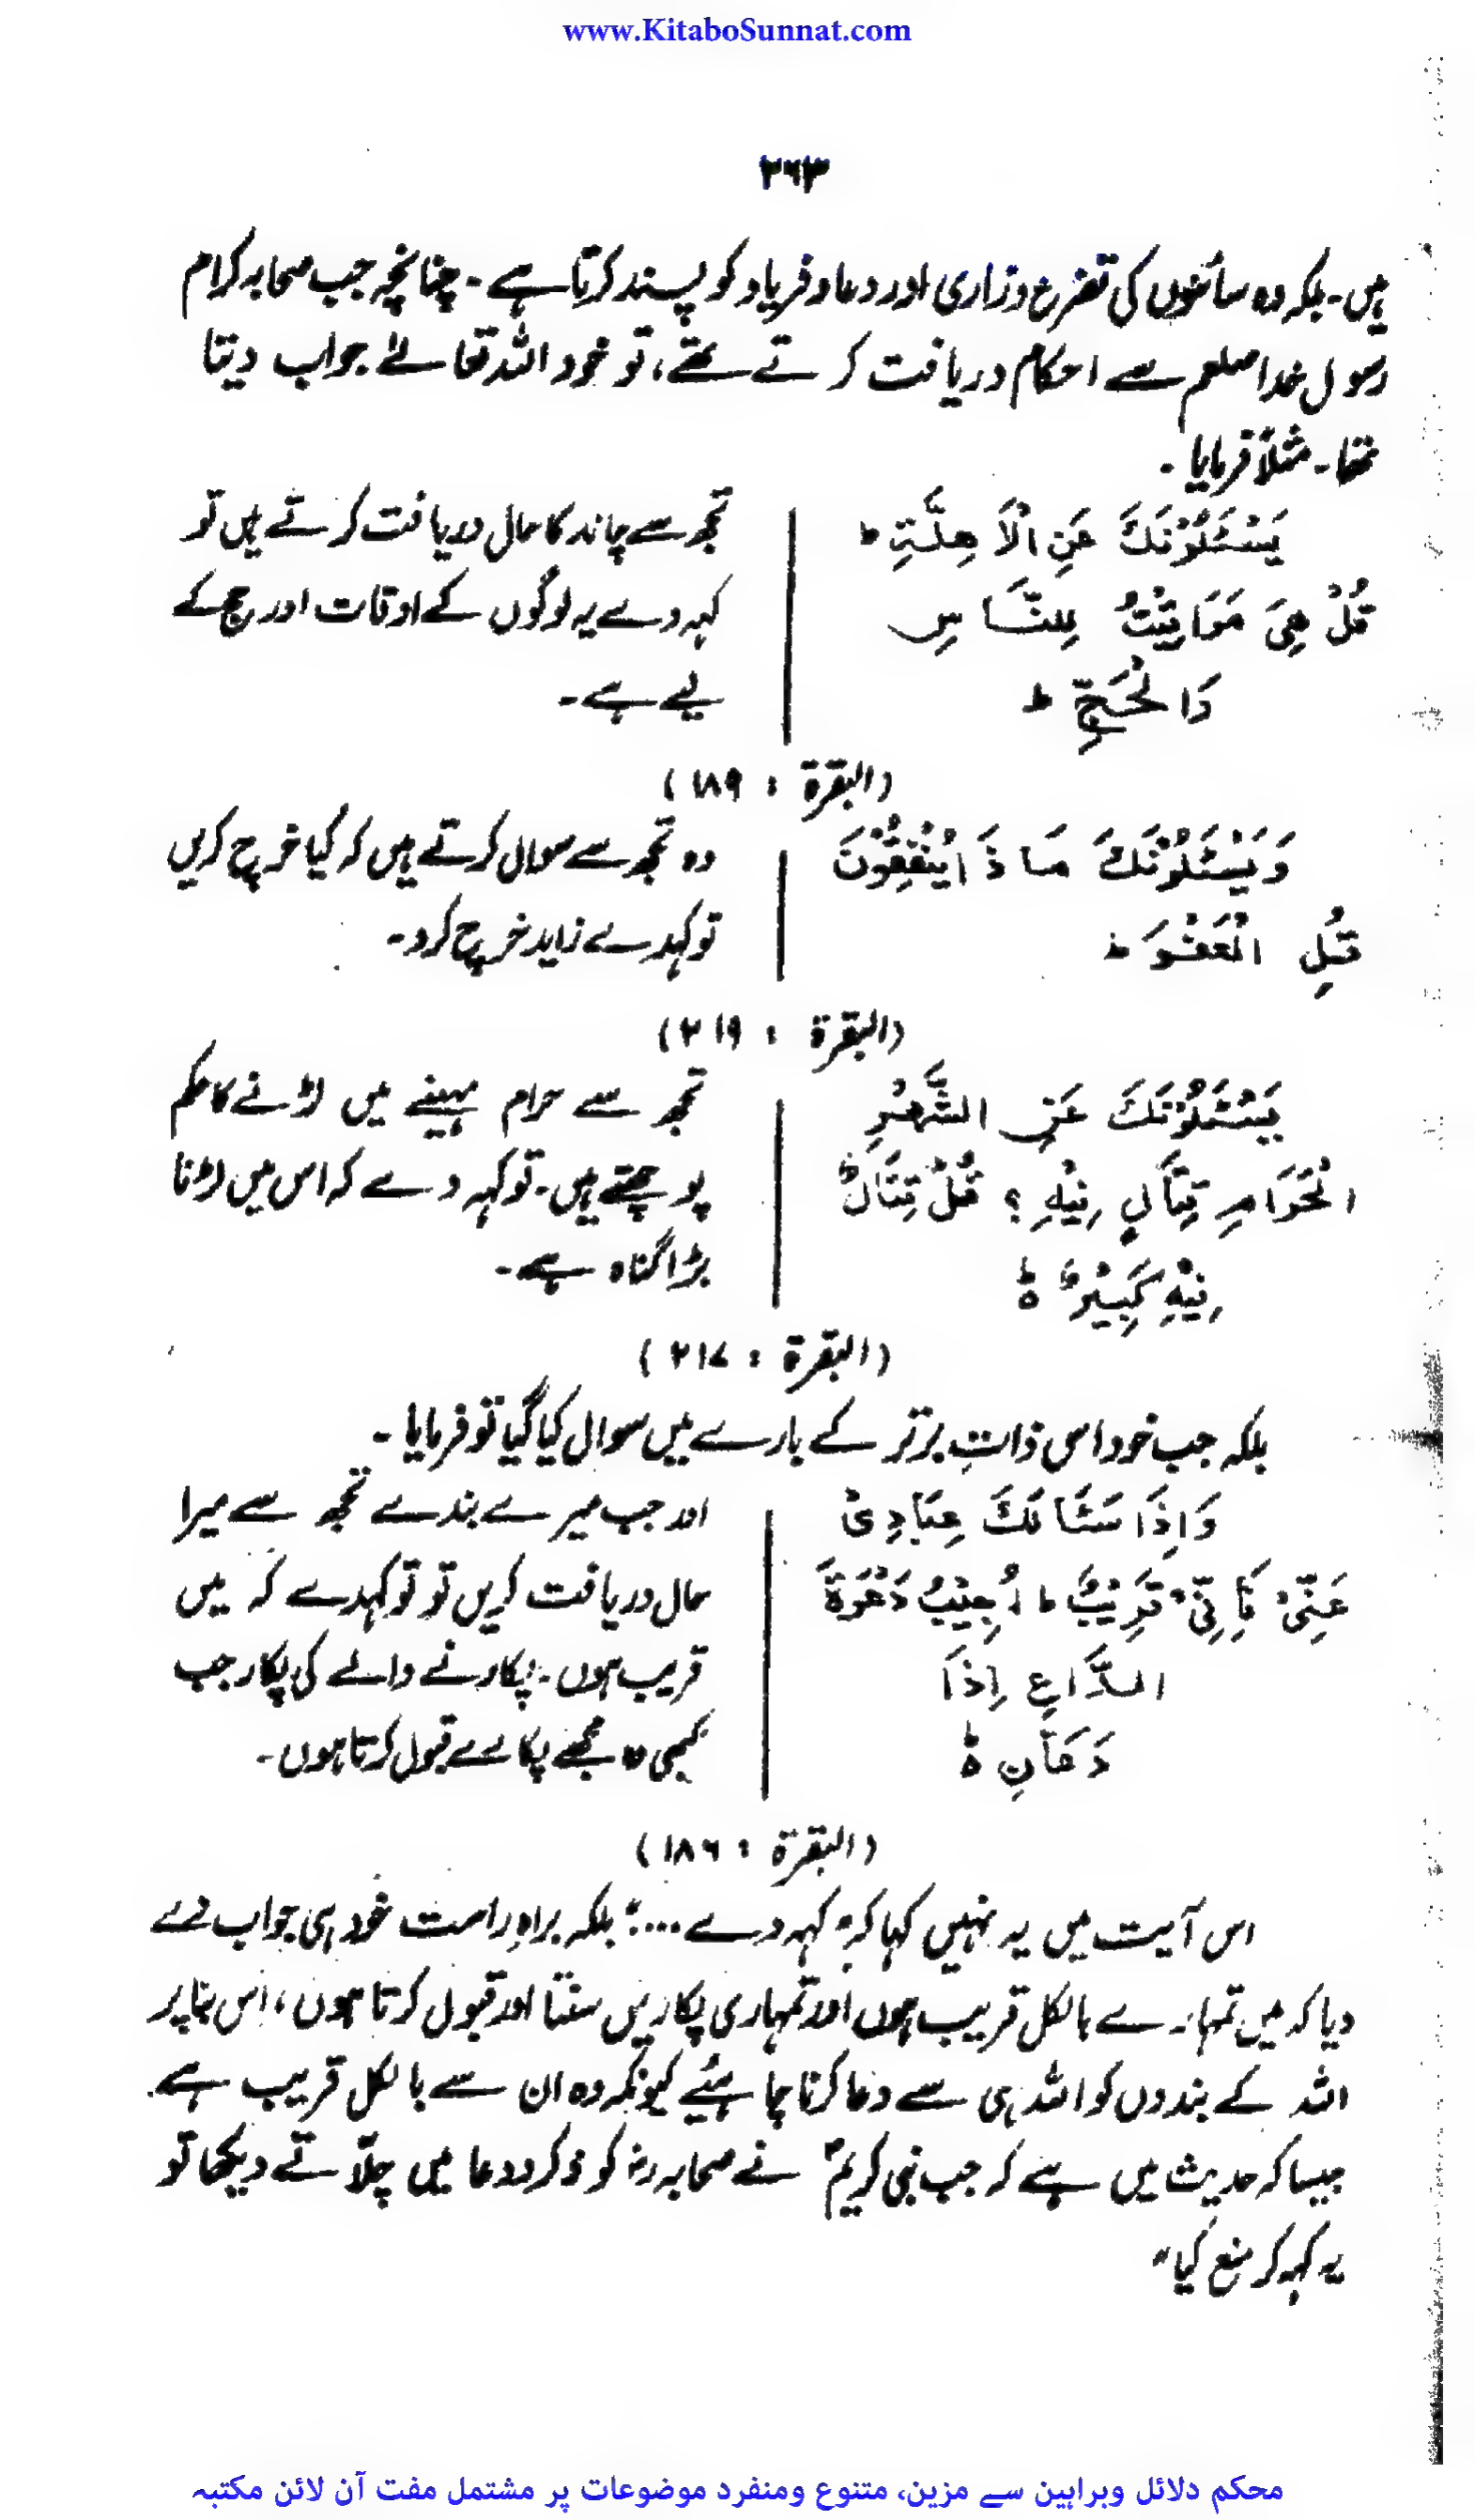 www.KitaboSunnat.com
۲۶۳
ہیں۔ بلکہ وہ سائلوں کی تضرع وزاری اور دعا و فریاد کو پسند کرتا ہے۔ چنانچہ جب صحابہ کرام
رسول خدا صلعم سے احکام دریافت کرتے تھے، تو خود اللہ تعالےٰ جواب دیتا
تھا۔ مثلاً فرمایا۔
يَسْئَلُوْنَكَ عَنِ الْاَهِلَّةِ ط
قُلْ هِيَ مَوَاقِيْتُ لِلنَّاسِ
وَالْحَجِّ ط
تجھ سے چاند کا حال دریافت کرتے ہیں تو
کہہ دے یہ لوگوں کے اوقات اور حج کے
لیے ہے۔
(البقرۃ : ۱۸۹)
وَيَسْئَلُوْنَكَ مَاذَا يُنْفِقُوْنَ
قُلِ الْعَفْوَ ط
وہ تجھ سے سوال کرتے ہیں کہ کیا خرچ کریں
تو کہدے زاید خرچ کرو۔
(البقرۃ : ۲۱۹)
يَسْئَلُوْنَكَ عَنِ الشَّهْرِ
الْحَرَامِ قِتَالٍ فِيْهِ ؟ قُلْ قِتَالٌ
فِيْهِ كَبِيْرٌ ط
تجھ سے حرام مہینے میں لڑنے کا حکم
پوچھتے ہیں۔ تو کہہ دے کہ اس میں لڑنا
بڑا گناہ ہے۔
(البقرۃ : ۲۱۷)
بلکہ جب خود اس ذاتِ برتر کے بارے میں سوال کیا گیا تو فرمایا۔
وَاِذَا سَئَالَكَ عِبَادِيْ
عَنِّيْ فَاِنِّيْ قَرِيْبٌ ط اُجِيْبُ دَعْوَةَ
الدَّاعِ اِذَا
دَعَانِ ط
اور جب میرے بندے تجھ سے میرا
حال دریافت کریں تو تو کہدے کہ میں
قریب ہوں۔ پکارنے والے کی پکار جب
کبھی وہ مجھے پکارے قبول کرتا ہوں۔
(البقرۃ : ۱۸۶)
اس آیت میں یہ نہیں کہا کہ "کہہ دے ...." بلکہ براہِ راست خود ہی جواب دے
دیا کہ میں تمہارے بالکل قریب ہوں اور تمہاری پکاریں سنتا اور قبول کرتا ہوں، اس بنا پر
اللہ کے بندوں کو اللہ ہی سے دعا کرنا چاہئیے کیونکہ وہ ان سے بالکل قریب ہے۔
جیسا کہ حدیث میں ہے کہ جب نبی کریمؐ نے صحابہ رضہ کو ذکر و دعا میں چلّاتے دیکھا تو
یہ کہہ کر منع کیا"
محکم دلائل وبراہین سے مزین، متنوع ومنفرد موضوعات پر مشتمل مفت آن لائن مکتبہ